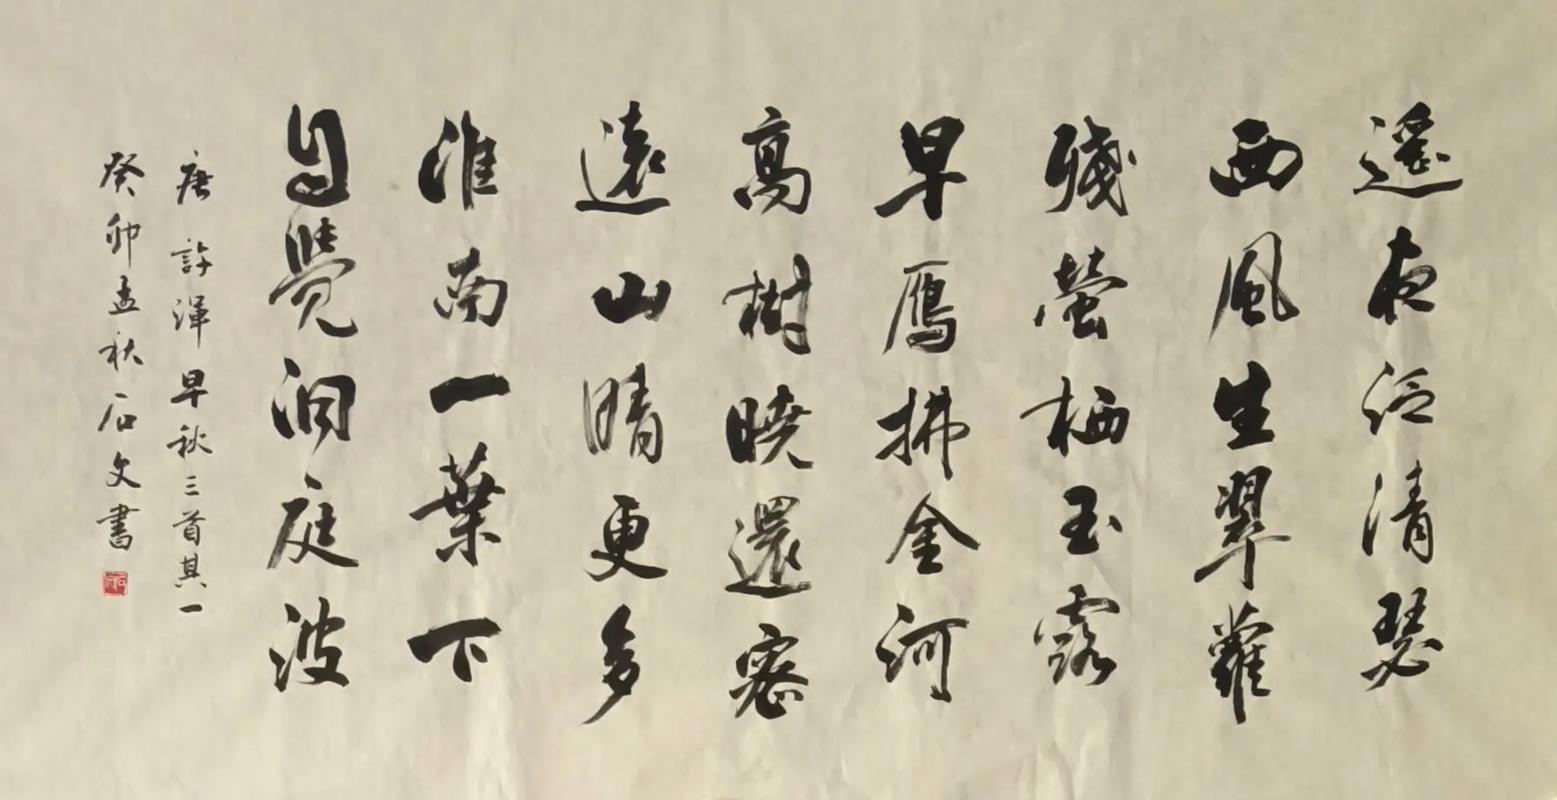 遥夜泛清瑟
西風生翠蘿
殘螢栖玉露
早鴈拂金河
高樹曉還密
遠山晴更多
淮南一葉下
自覺洞庭波
唐許渾早秋三首其一
癸卯孟秋石文書